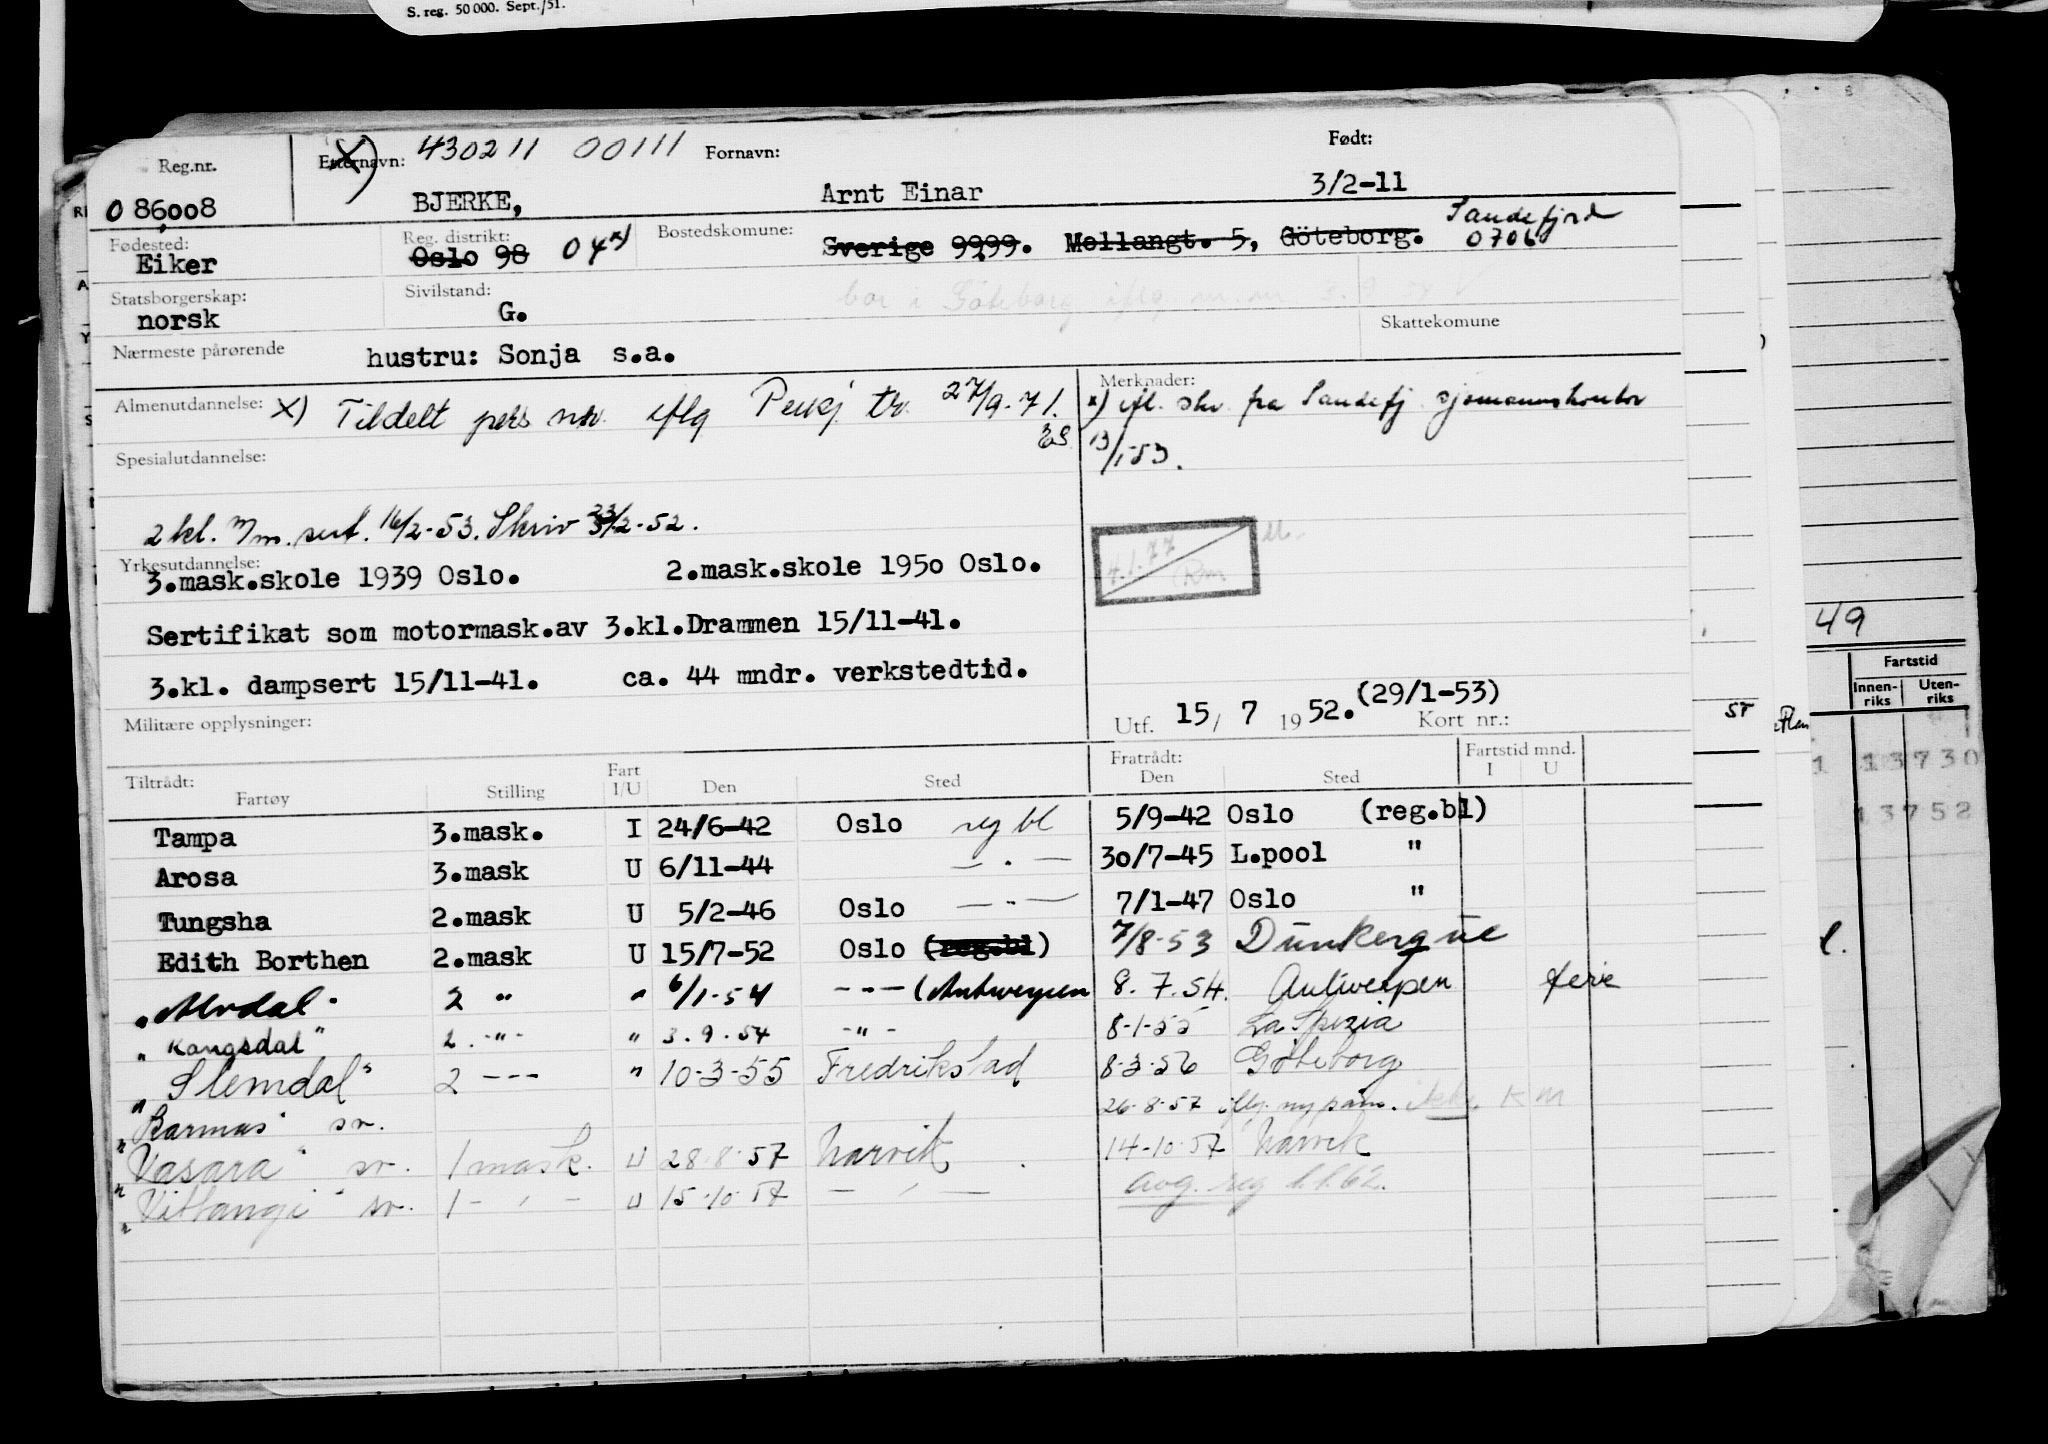 S. reg. 50 000. Sept./51.
Reg.nr. Etternavn: X) 430211 00111 Fornavn: Født:
086008 BJERKE, Arnt Einar 3/2-11
Fødested: Reg. distrikt: Bostedskomune: Sandefjord
Eiker Oslo 98 04 x) Sverige 9999. Mellangt. 5, Göteborg. 0706
Statsborgerskap: Sivilstand: bor i Göteborg iflg.
norsk G. Skattekomune
Nærmeste pårørende hustru: Sonja s.a.
Almenutdannelse: X) Tildelt pers nr. iflg Perkj tr. 27/9-71.
Merknader:
x) ifl. skr. fra Sandefj. sjømannskontor
13/1-53.
Spesialutdannelse:
2 kl. m/m. sert. 16/2-53. Skriv 23/2-52.
4.1.77
Yrkesutdannelse:
3.mask.skole 1939 Oslo. 2.mask.skole 1950 Oslo.
Sertifikat som motormask.av 3.kl.Drammen 15/11-41.
3.kl. dampsert 15/11-41. ca. 44 mndr. verkstedtid.
Militære opplysninger: Utf. 15/ 7 1952. (29/1-53) Kort nr.:
Tiltrådt: Fratrådt: Fartstid mnd.
Fartøy Stilling Fart I/U Den Sted Den Sted I U
Tampa 3.mask. I 24/6-42 Oslo reg bl 5/9-42 Oslo (reg.bl)
Arosa 3.mask U 6/11-44 — . — 30/7-45 L.pool "
Tungsha 2.mask U 5/2-46 Oslo — - — 7/1-47 Oslo "
Edith Borthen 2.mask U 15/7-52 Oslo (reg.bl) 7/8-53 Dunkerque
2 " " 6/1-54 - - - (Antwerpen 8. 7. 54. Antwerpen ferie
"Kongsdal" 2. -"- " 3. 9. 54 -"- 8-1-55 La Spezia
"Slemdal" 2 --- " 10-3-55 Fredrikstad 8-3-56 Göteborg
"Barmas" sv. 26-8-57 iflg. KM
"Vasara" sv. 1 mask. U 28-8-57 Narvik 14-10-57 Narvik
"Vittangi" sv. 1 - ' - U 15-10-57 — ' — avg. reg 1.1.62.
49
Fartstid
Innen-riks Uten-riks
1 13730
13752
ST